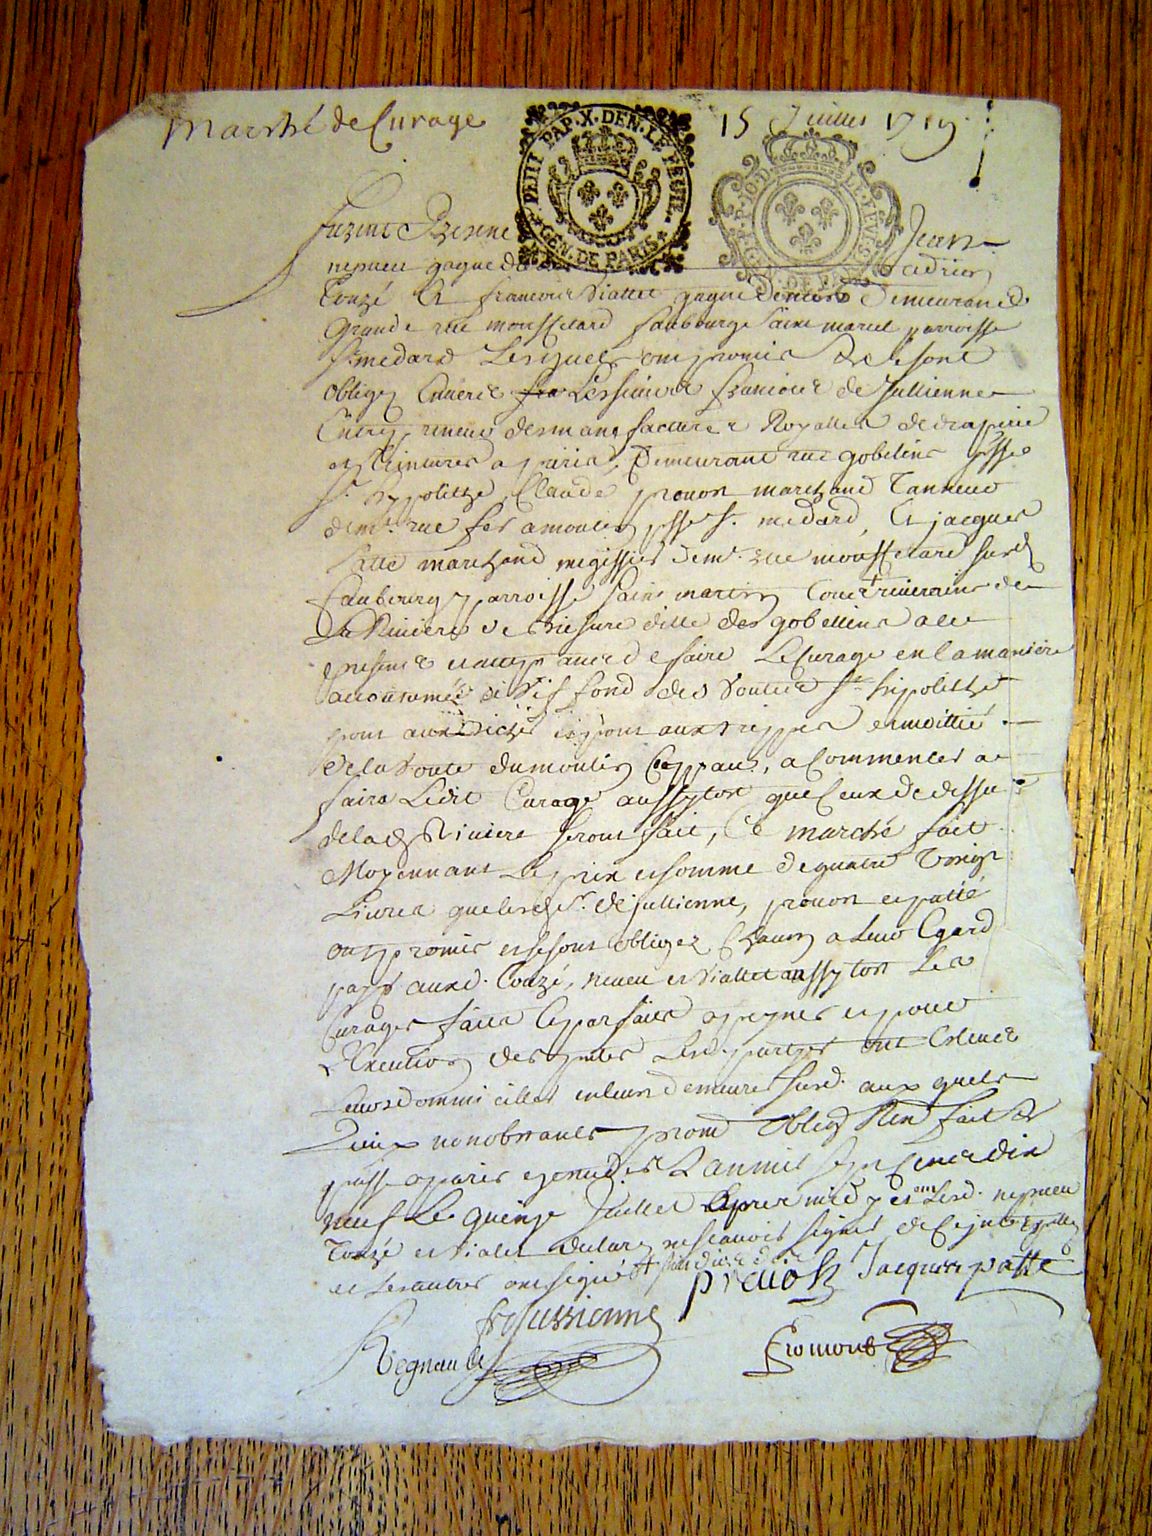 Marché de Curage 15 Juillet 1719
PETIT PAP. X. DEN. LE FEUIL.
GEN. DE PARIS
Furent Présens Jean
nepueu gagne de Adrien
Touzé Et francois Viallet gagne deniers demeurans
Grande rue mouffetard faubourg Saint marcel parroisse
St medard Lesquels ont promis et se sont
obligez Envers Les sieurs francois de Jullienne
Entrepreneur des manufactures Royalles de draperie
et teintures a paris, demeurant rue gobelins psse
St hyppolitte Claude prouost marchand Tanneur
demt. rue fer a moulin psse St. medard, Et jacques
patté marchand megissier demt. rue mouffetard susd
faubourg parroisse Saint martin Tous riuerains de
La Riuiere de Bieure ditte des gobelins a ce
presens et acceptans de faire Le Curage en la maniere
accoutumée a Vif fond des Voutes St hippolitte
pont aux pont aux trippes et moittié
de la Voute du moulin Coppeau, a Commencer a
faire Ledit Curage aussytost que Ceux de dessus
de lad Riuiere seront fait, Ce marché fait
Moyennant Le prix et somme de quatre Vingt
Liures que lesd Srs. de jullienne, prouost et patté
ont promis et se sont obligez Chacun a Leur Egard
payer auxd. Touzé, neueu et Viallet aussytost Les
Curages faits Et parfaits a peynes et pour
L'Execution des ptes Lesd. parties ont Esleues
Leurs domicilles en leurs demeures susd. aux quels
Lieux nonobstant promt obligt Ren fait et
passé a paris es estudes L'an mil sept Cens dix
neuf Le quinze Juillet apres midy et ont Lesd. nepueu
Touzé et Vialet declaré ne scauoir signer de Ce interpellez
et Les autres ont signé
prevost Jacques patté
frs jullienne
Regnault
fromont